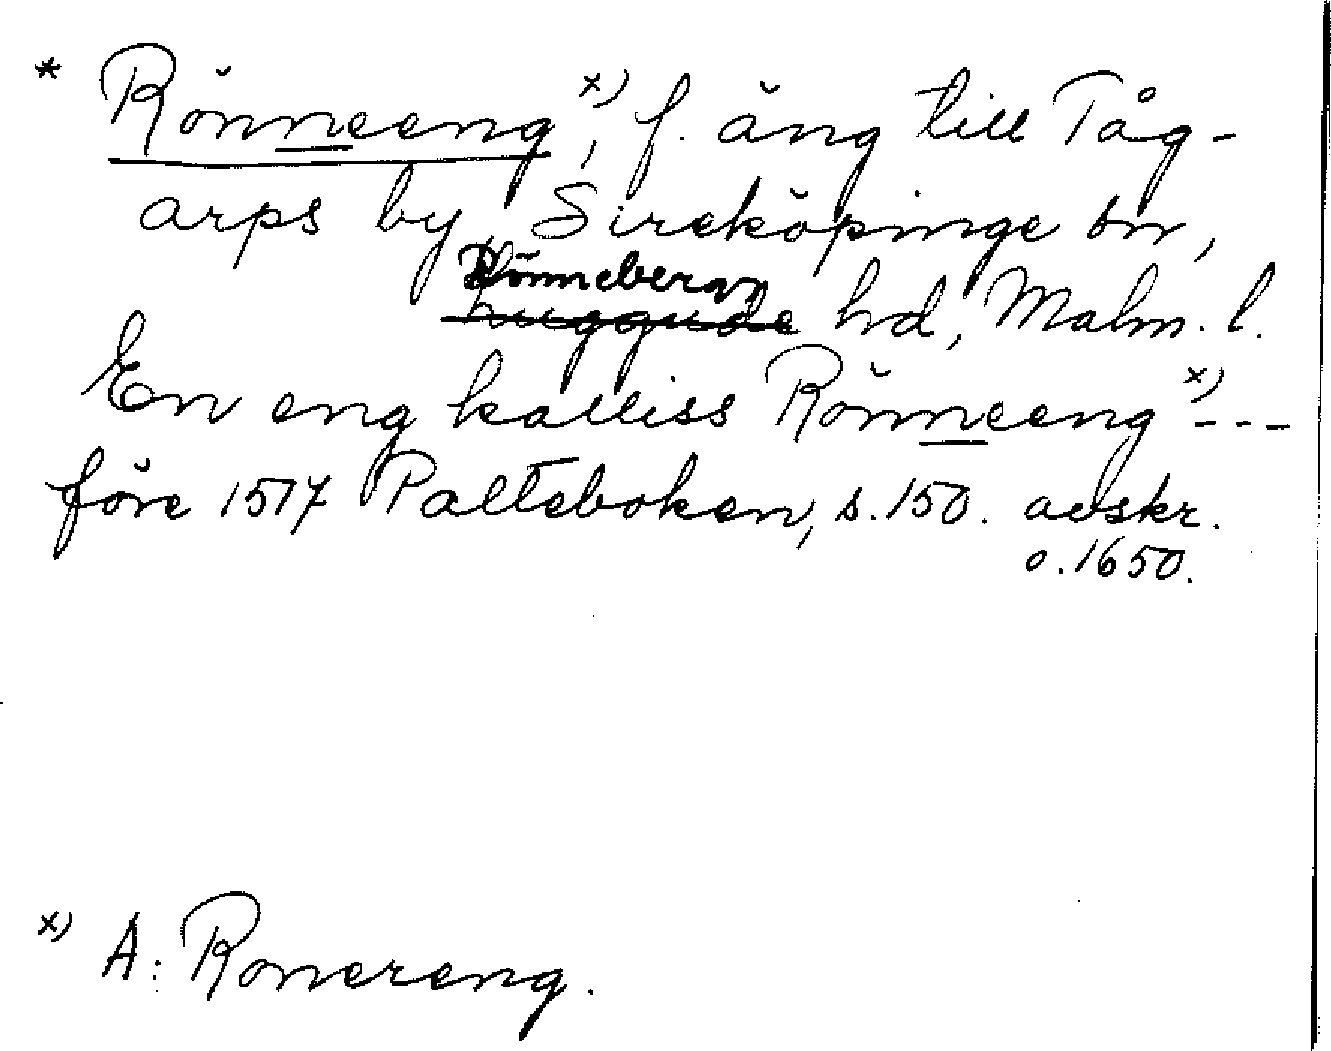 * Rönneeng x), f. äng till Tåg-
arps by, Sireköpinge sn,
Rönneberg
luggude hd, Malm. l.
En eng kalliss Rönneeng x) - - -
före 1517 Palteboken, s. 150. avskr.
o. 1650.
x) A: Ronereng.